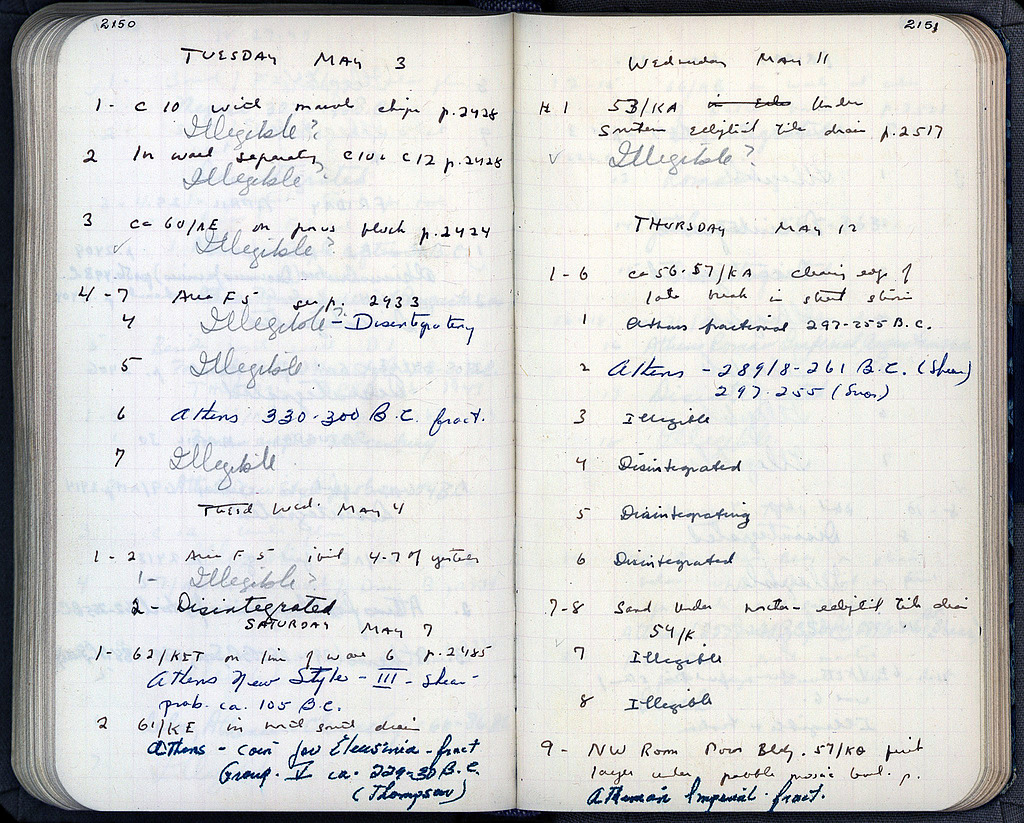 2150
TUESDAY MAY 3
1 - C 10 with marble chips p. 2428
Illegible?
2 In wall separating C10 & C12 p. 2428
Illegible?
3 ca 60/ΛE on poros block p. 2424
Illegible?
4-7 Area F5 see p. 2433
4 Illegible? - Disintegrating
5 Illegible
6 Athens 330-300 B.C. fract.
7 Illegible
Wed. MAY 4
1-2 Area F 5 4-7 of yesterday
1- Illegible?
2- Disintegrated
SATURDAY MAY 7
1- 62/ on line of wall 6 p. 2485
Athens New Style - III - Shear -
prob. ca. 105 B.C.
2 61/KE in drain
Athens - coin for Eleusinia - fract
Group. V ca. 229-30 B.C.
(Thompson)
2151
Wednesday MAY 11
# 1 53/KA under
Southern tile drain p. 2517
Illegible?
THURSDAY MAY 12
1-6 ca 56-57/KA cleaning edge of
late in street
1 Athens fractional 297-255 B.C.
2 Athens - 289/8-261 B.C. (Shear)
297-255 (Svor)
3 Illegible
4 Disintegrated
5 Disintegrating
6 Disintegrated
7-8 Sand under tile drain
54/K
7 Illegible
8 Illegible
9 - NW Room Poros Bldg. 57/
layer under pebble mosaic p.
Athenian Imperial fract.